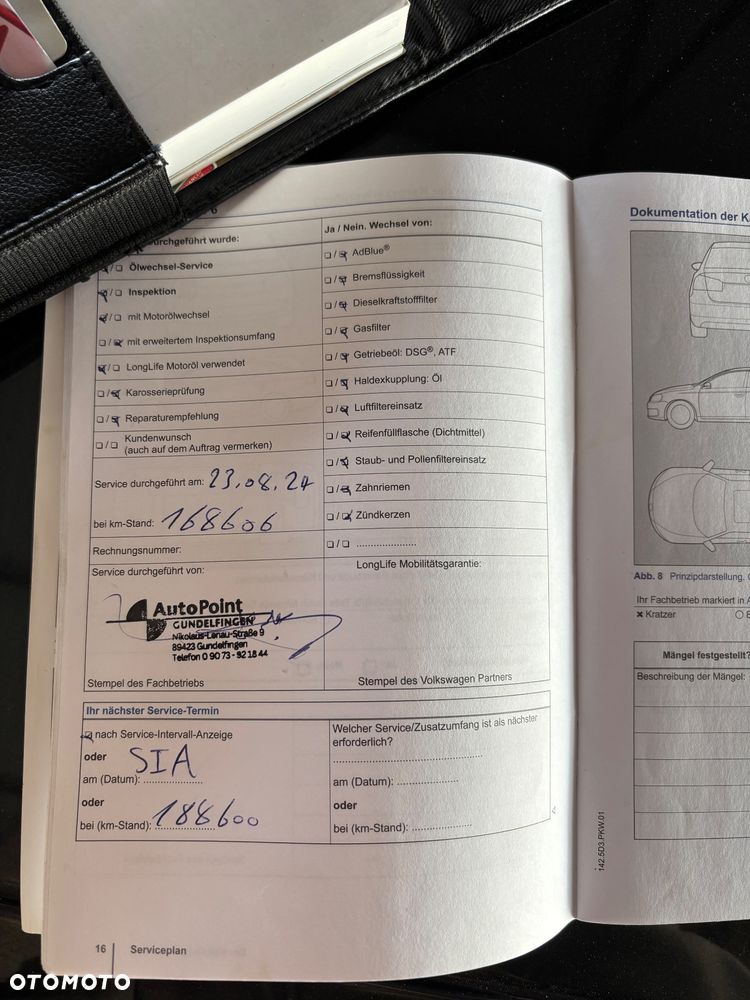 durchgeführt wurde:
Ja / Nein. Wechsel von:
Ölwechsel-Service
Inspektion
mit Motorölwechsel
mit erweitertem Inspektionsumfang
LongLife Motoröl verwendet
Karosserieprüfung
Reparaturempfehlung
Kundenwunsch
(auch auf dem Auftrag vermerken)
AdBlue®
Bremsflüssigkeit
Dieselkraftstofffilter
Gasfilter
Getriebeöl: DSG®, ATF
Haldexkupplung: Öl
Luftfiltereinsatz
Reifenfüllflasche (Dichtmittel)
Staub- und Pollenfiltereinsatz
Zahnriemen
Zündkerzen
Service durchgeführt am: 23.08.24
bei km-Stand: 168606
Rechnungsnummer:
Service durchgeführt von:
LongLife Mobilitätsgarantie:
AutoPoint
GUNDELFINGEN
Nikolaus-Lenau-Straße 9
89423 Gundelfingen
Telefon 0 90 73 - 92 18 44
Stempel des Fachbetriebs
Stempel des Volkswagen Partners
Ihr nächster Service-Termin
nach Service-Intervall-Anzeige
oder
SIA
am (Datum):
oder
bei (km-Stand): 188600
Welcher Service/Zusatzumfang ist als nächster
erforderlich?
am (Datum):
oder
bei (km-Stand):
16 Serviceplan
Dokumentation der K
Abb. 8 Prinzipdarstellung.
Ihr Fachbetrieb markiert in A
✖ Kratzer
Mängel festgestellt?
Beschreibung der Mängel:
142.5D3.PKW.01
OTOMOTO